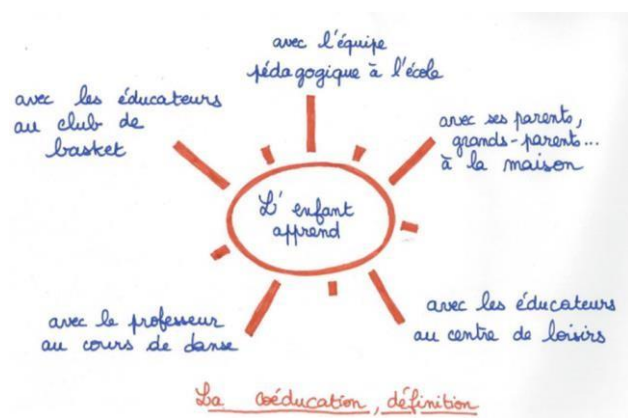 avec l'équipe
pédagogique à l'école
avec les éducateurs
au club de
basket
avec ses parents,
grands-parents...
à la maison
L'enfant
apprend
avec le professeur
au cours de danse
avec les éducateurs
au centre de loisirs
La coéducation, définition